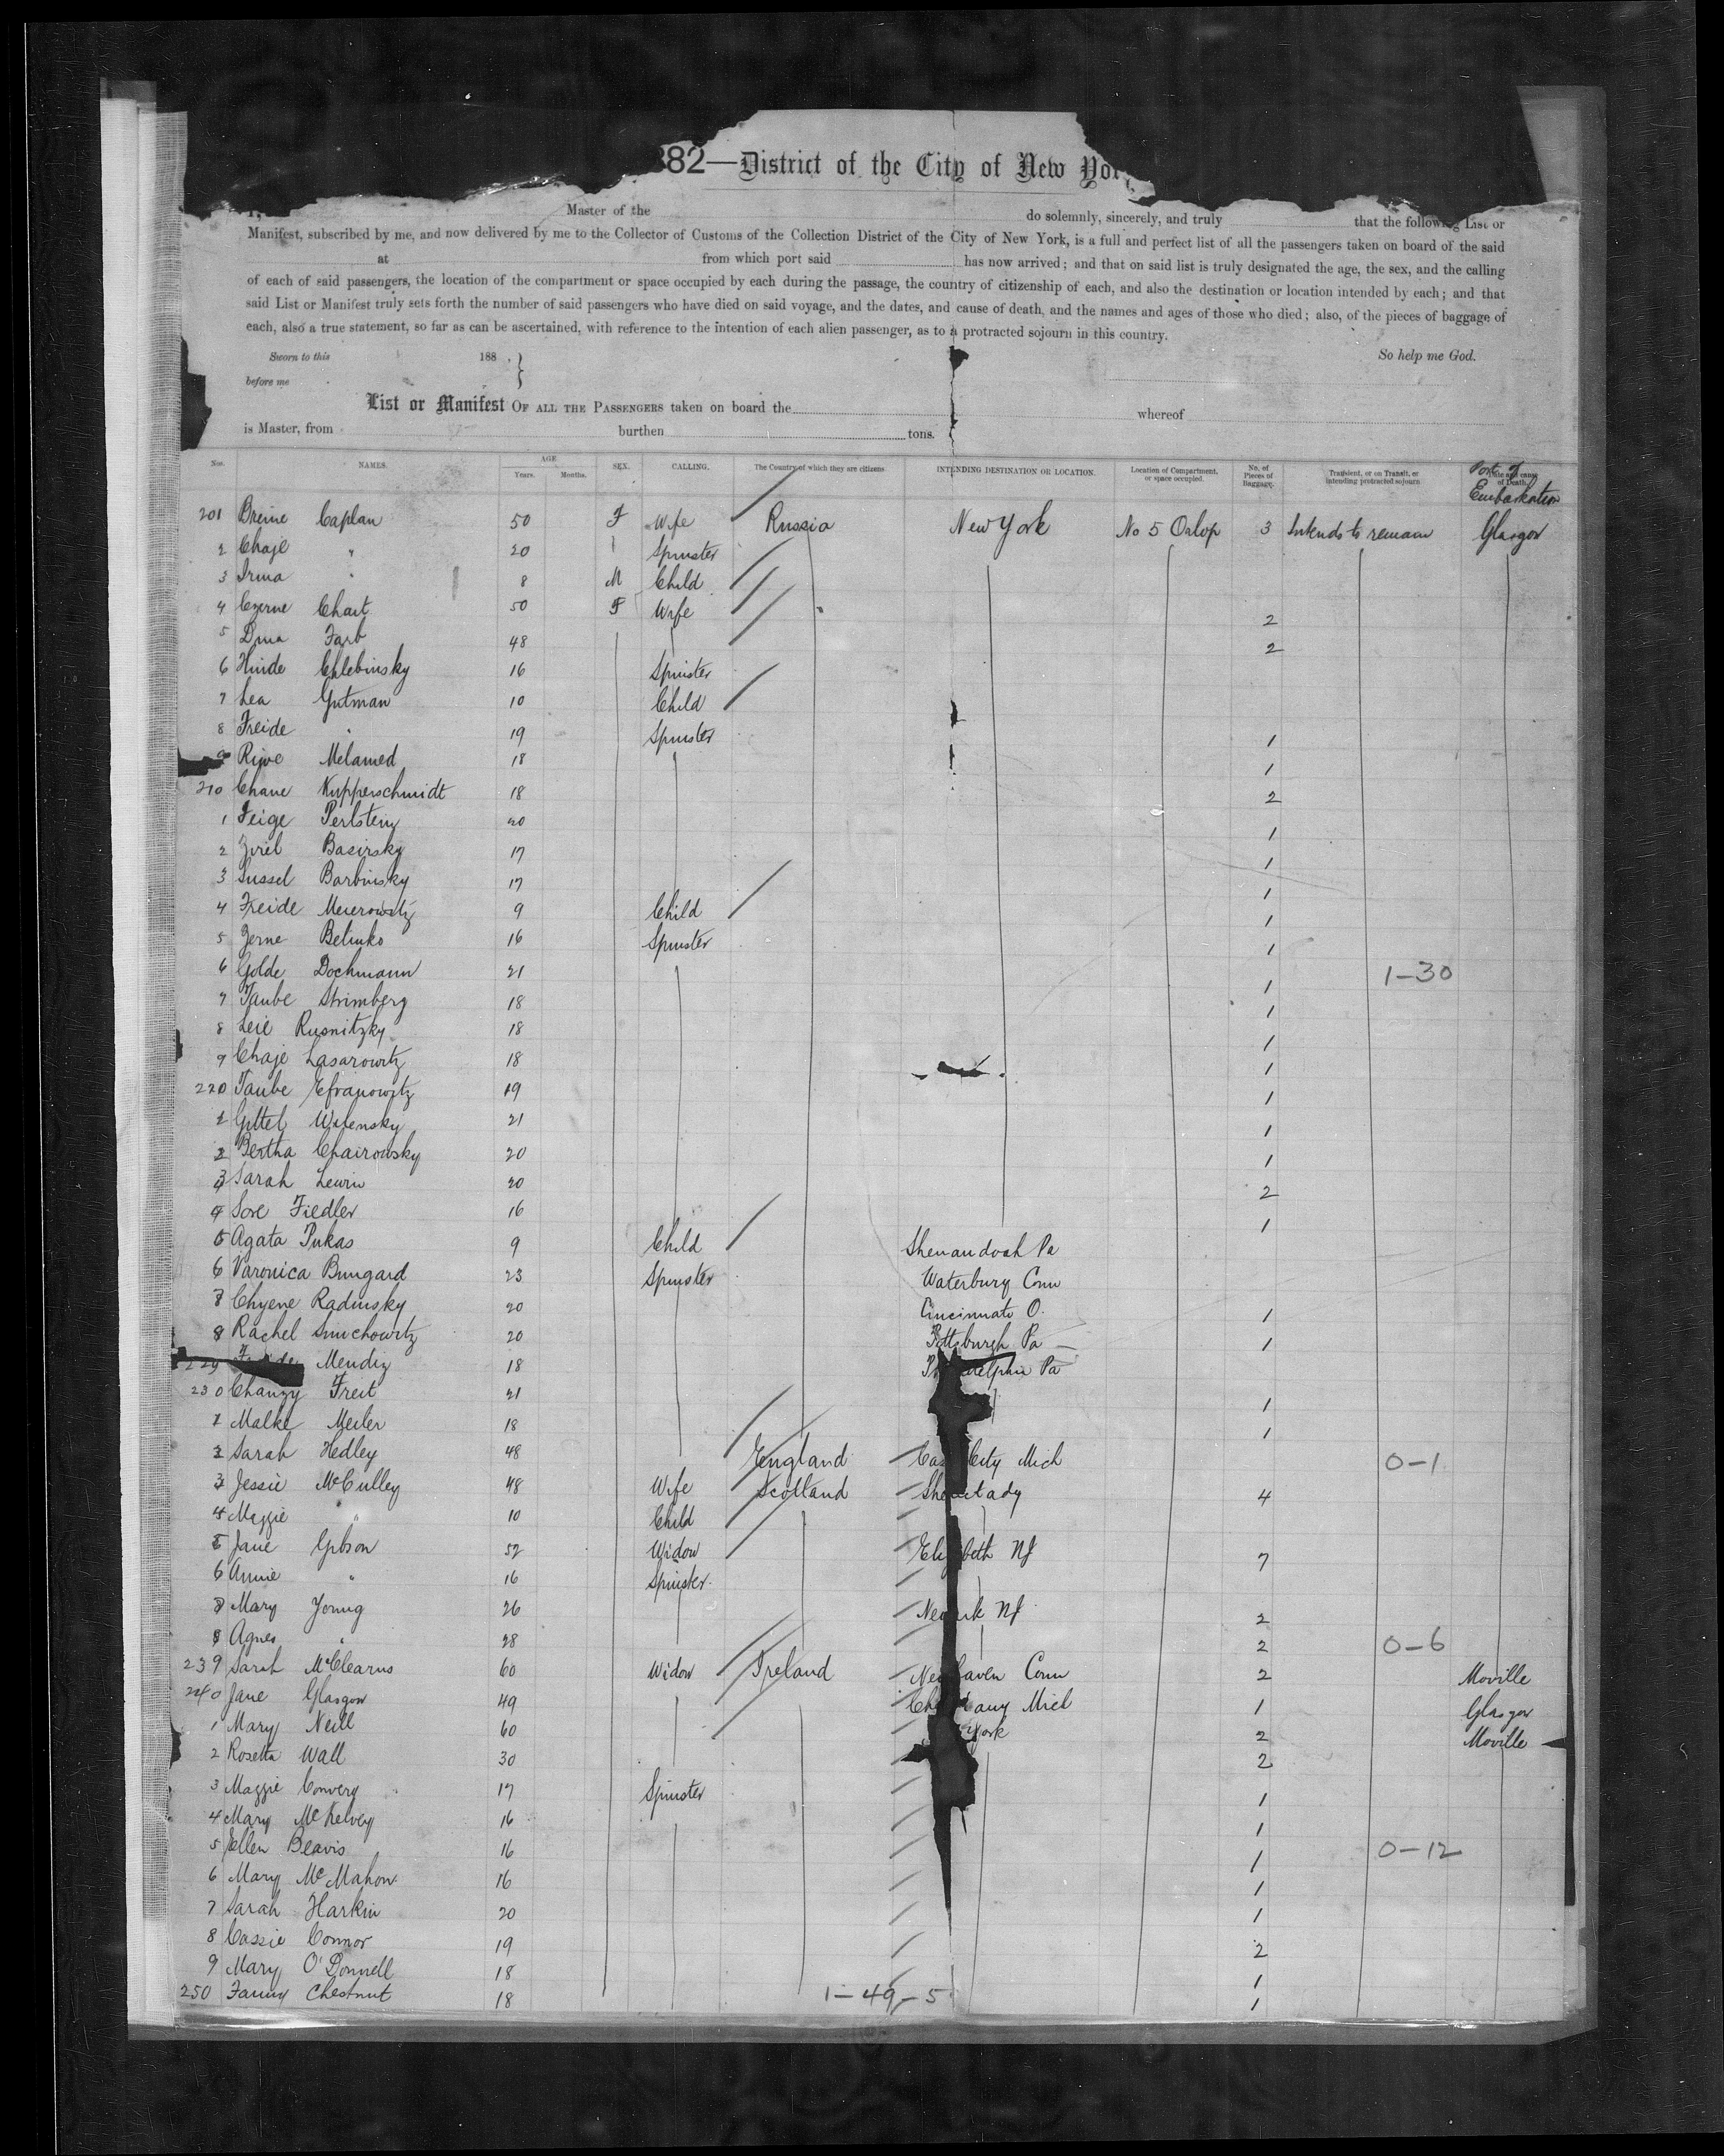 82—District of the City of New Yor
Master of the do solemnly, sincerely, and truly that the following List or
Manifest, subscribed by me, and now delivered by me to the Collector of Customs of the Collection District of the City of New York, is a full and perfect list of all the passengers taken on board of the said
at from which port said has now arrived; and that on said list is truly designated the age, the sex, and the calling
of each of said passengers, the location of the compartment or space occupied by each during the passage, the country of citizenship of each, and also the destination or location intended by each; and that
said List or Manifest truly sets forth the number of said passengers who have died on said voyage, and the dates, and cause of death, and the names and ages of those who died; also, of the pieces of baggage of
each, also a true statement, so far as can be ascertained, with reference to the intention of each alien passenger, as to a protracted sojourn in this country.
Sworn to this 188 . } So help me God.
before me
List or Manifest OF ALL THE PASSENGERS taken on board the whereof
is Master, from burthen tons.
Nos. NAMES. AGE Years. Months. SEX. CALLING. The Country of which they are citizens INTENDING DESTINATION OR LOCATION. Location of Compartment, or space occupied. No. of Pieces of Baggage. Transient, or on Transit, or intending protracted sojourn Port of Embarkation
201 Breine Caplan 50 F Wife Russia New York No 5 Orlop 3 Intends to remain Glasgow
2 Chaje " 20 Spinster
3 Irma " 8 M Child
4 Czerne Chait 50 F Wife 2
5 Dina Farb 48 2
6 Hinde Chlebinsky 16 Spinster
7 Lea Gutman 10 Child
8 Freide " 19 Spinster 1
9 Rijve Melamed 18 1
210 Chane Kupperschmidt 18 2
1 Feige Perlsteny 20 1
2 Zirel Basirsky 17 1
3 Sussel Barbinsky 17 1
4 Freide Meierowitz 9 Child 1
5 Zerne Belinko 16 Spinster 1
6 Golde Dochmann 21 1 1-30
7 Taube Strimberg 18 1
8 Leie Rusnitzky 18 1
9 Chaje Lasarowitz 18 1
220 Taube Efranowitz 19 1
1 Gittel Wilensky 21 1
2 Bertha Chairowsky 20 1
3 Sarah Lewin 20 2
4 Sore Fiedler 16 1
5 Agata Pukas 9 Child Shenandoah Pa
6 Varonica Bungard 23 Spinster Waterbury Conn
7 Chyene Radinsky 20 Cincinnati O. 1
8 Rachel Smichowitz 20 Pittsburgh Pa 1
229 Mendiz 18 Pa
230 Chanzy Freit 21 1
1 Malke Meiler 18 1
2 Sarah Hedley 48 England City Mich 0-1
3 Jessie McCulley 48 Wife Scotland 4
4 Maggie " 10 Child
5 Jane Gibson 52 Widow Elizabeth NJ 7
6 Annie " 16 Spinster
7 Mary Young 26 Newark NJ 2
8 Agnes " 28 2 0-6
239 Sarah McClearns 60 Widow Ireland New Haven Conn 2 Moville
240 Jane Glasgow 49 Mich 1 Glasgow
1 Mary Neill 60 York 2 Moville
2 Rosetta Wall 30 2
3 Maggie Convery 17 Spinster 1
4 Mary McKelvey 16 1
5 Ellen Beavis 16 1 0-12
6 Mary McMahon 16 1
7 Sarah Harkin 20 1
8 Cassie Connor 19 2
9 Mary O'Donnell 18 1
250 Fanny Chestnut 18 1
1-49-5